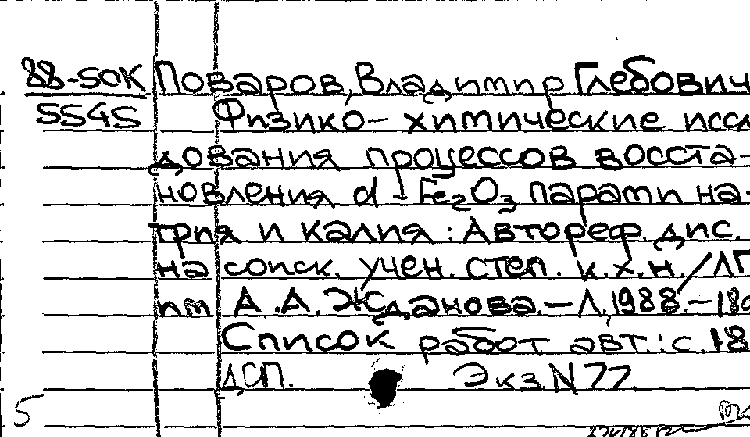 88-50К Поваров, Владимир Глебович
5545 Физико-химические иссл
дования процессов восста-
новления α-Fe₂O₃ парами на-
трия и калия : Автореф. дис.
на соиск. учен. степ. к.х.н. / ЛГ
им А.А. Жданова. - Л, 1988. - 18с
Список работ авт.: с. 18
ДСП. Экз N 77
5